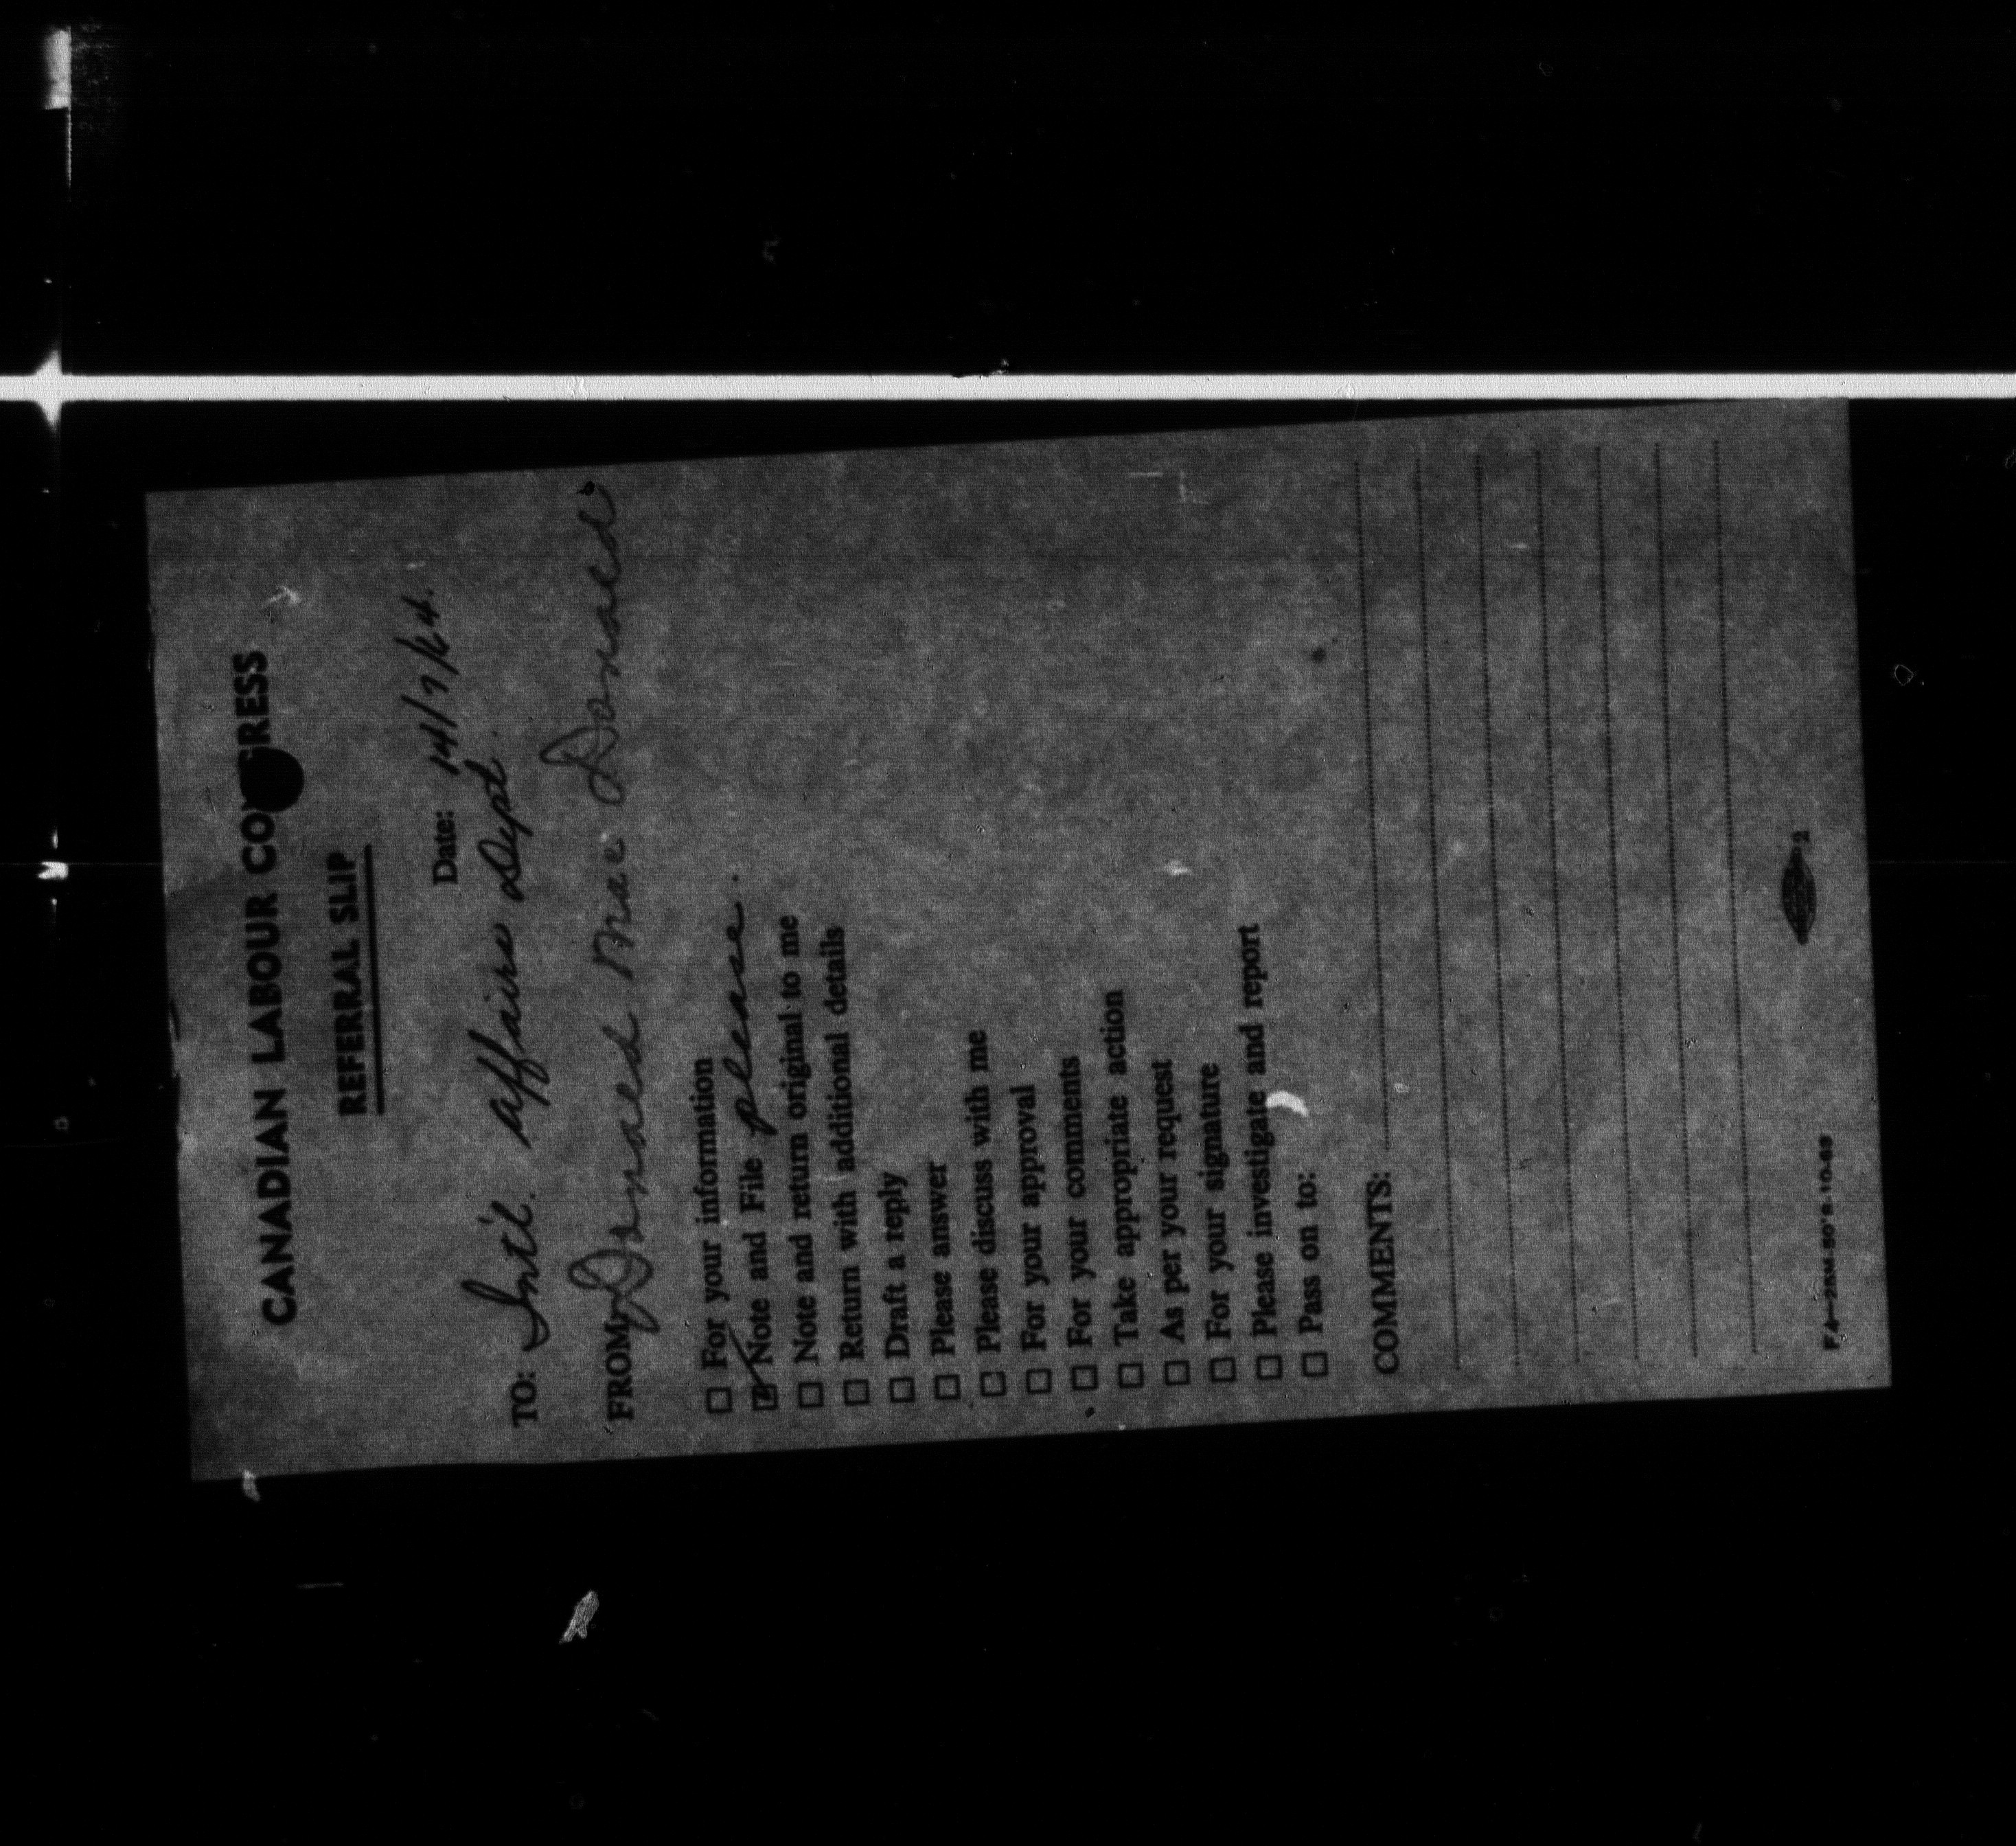 CANADIAN LABOUR CONGRESS
REFERRAL SLIP
Date: 14/7/64.
TO: Int'l. Affairs Dept.
FROM: Donald MacDonald
☐ For your information
☑ Note and File please.
☐ Note and return original to me
☐ Return with additional details
☐ Draft a reply
☐ Please answer
☐ Please discuss with me
☐ For your approval
☐ For your comments
☐ Take appropriate action
☐ As per your request
☐ For your signature
☐ Please investigate and report
☐ Pass on to:
COMMENTS:
2